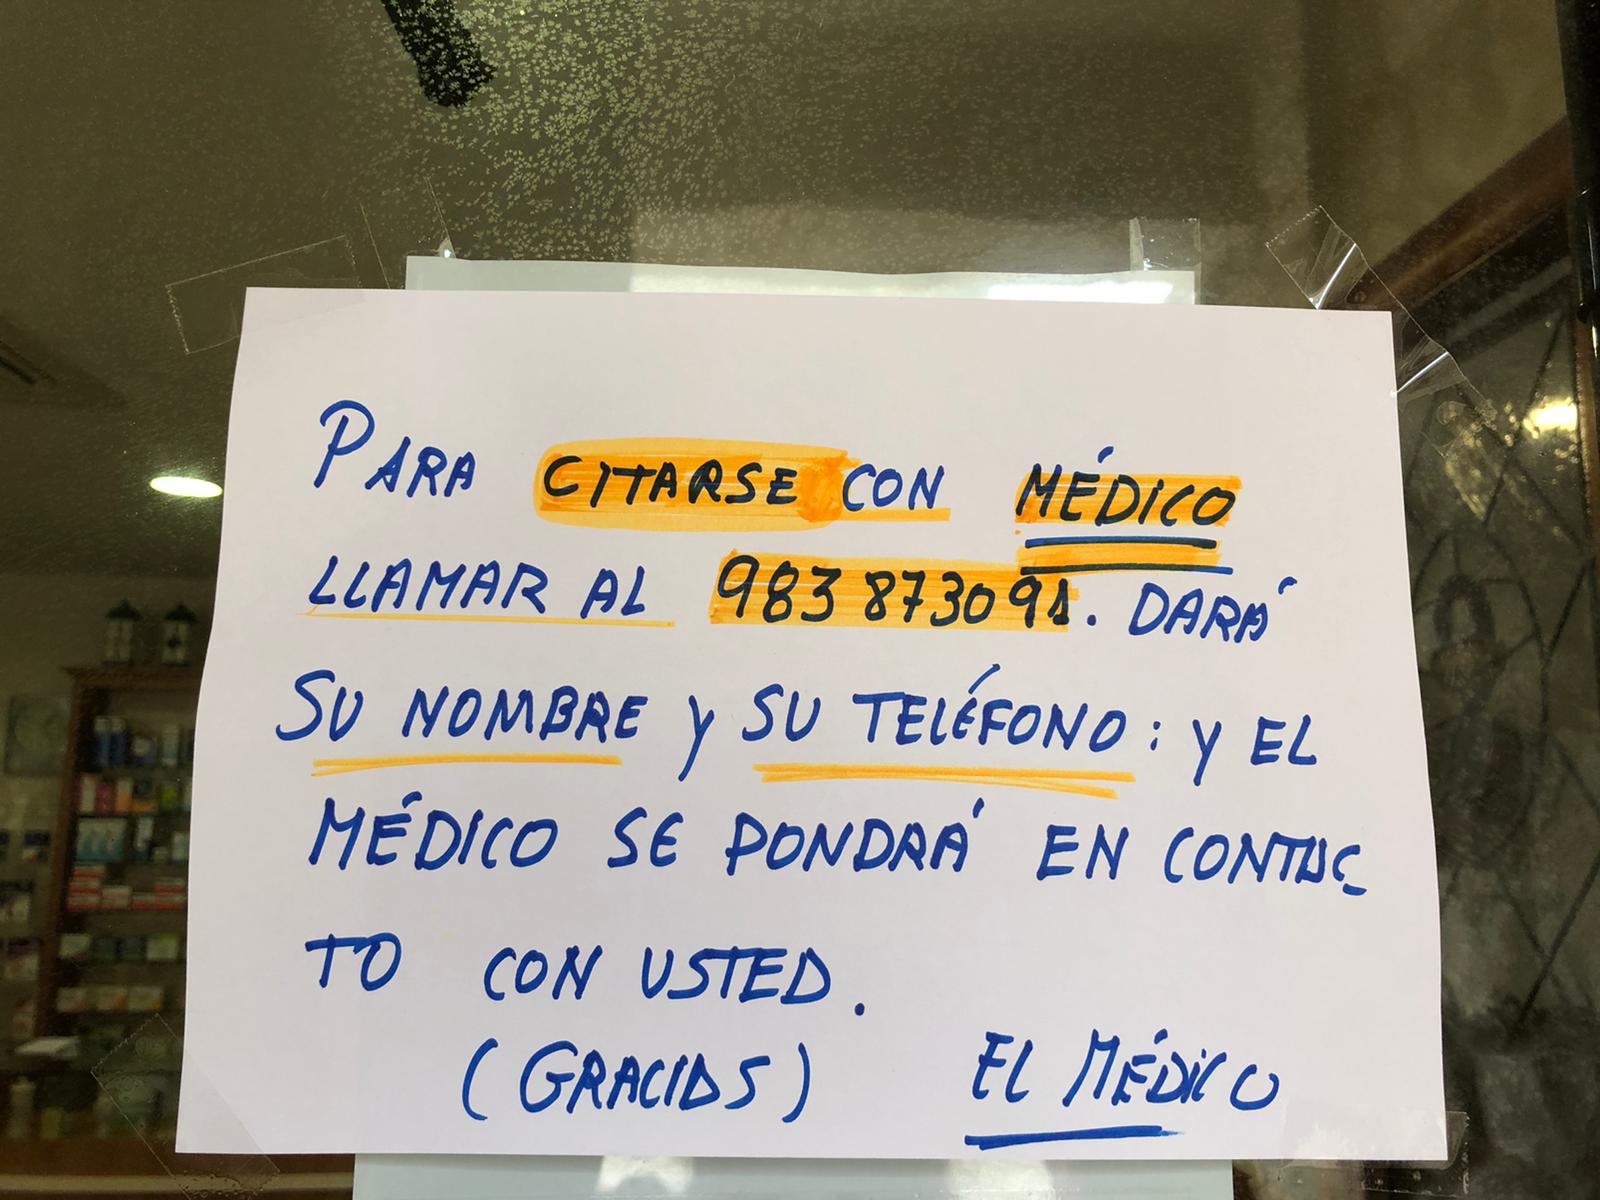 PARA CITARSE CON MÉDICO
LLAMAR AL 983 873091. DARÁ
SU NOMBRE Y SU TELÉFONO: Y EL
MÉDICO SE PONDRÁ EN CONTAC
TO CON USTED.
(GRACIAS) EL MÉDICO